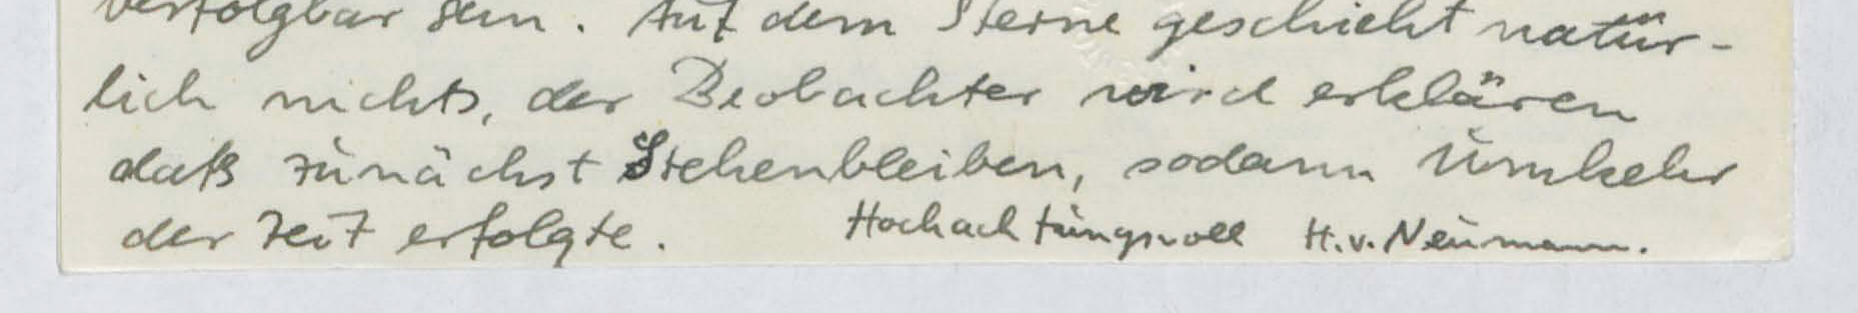 verfolgbar sein. Auf dem Sterne geschieht natür-
lich nichts, der Beobachter wird erklären
daß zunächst Stehenbleiben, sodann Umkehr
der Zeit erfolgte. Hochachtungsvoll H.v. Neumann.